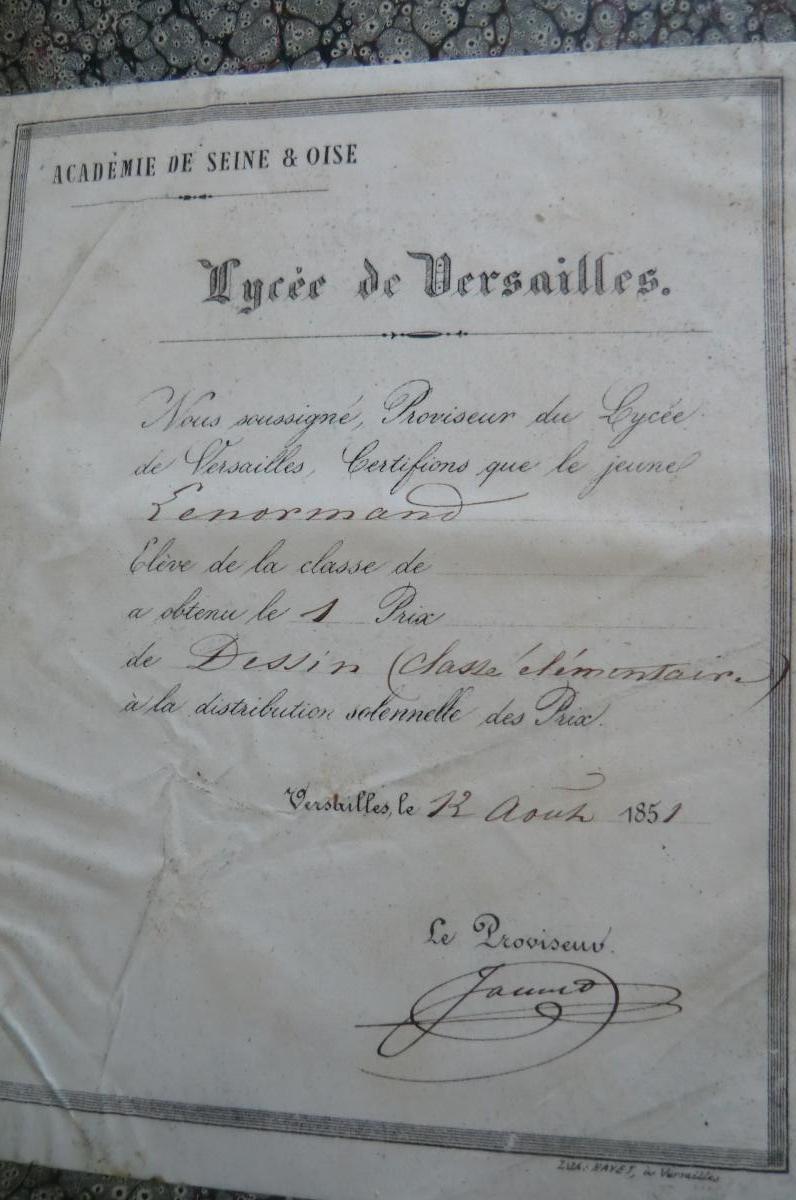 ACADÉMIE DE SEINE & OISE
Lycée de Versailles.
Nous soussigné, Proviseur du Lycée
de Versailles, Certifions que le jeune
Lenormand
Elève de la classe de
a obtenu le 1 Prix
de Dessin (classe élémentaire)
à la distribution solennelle des Prix.
Versailles, le 12 Août 1851
Le Proviseur.
Lith. HAYET, à Versailles